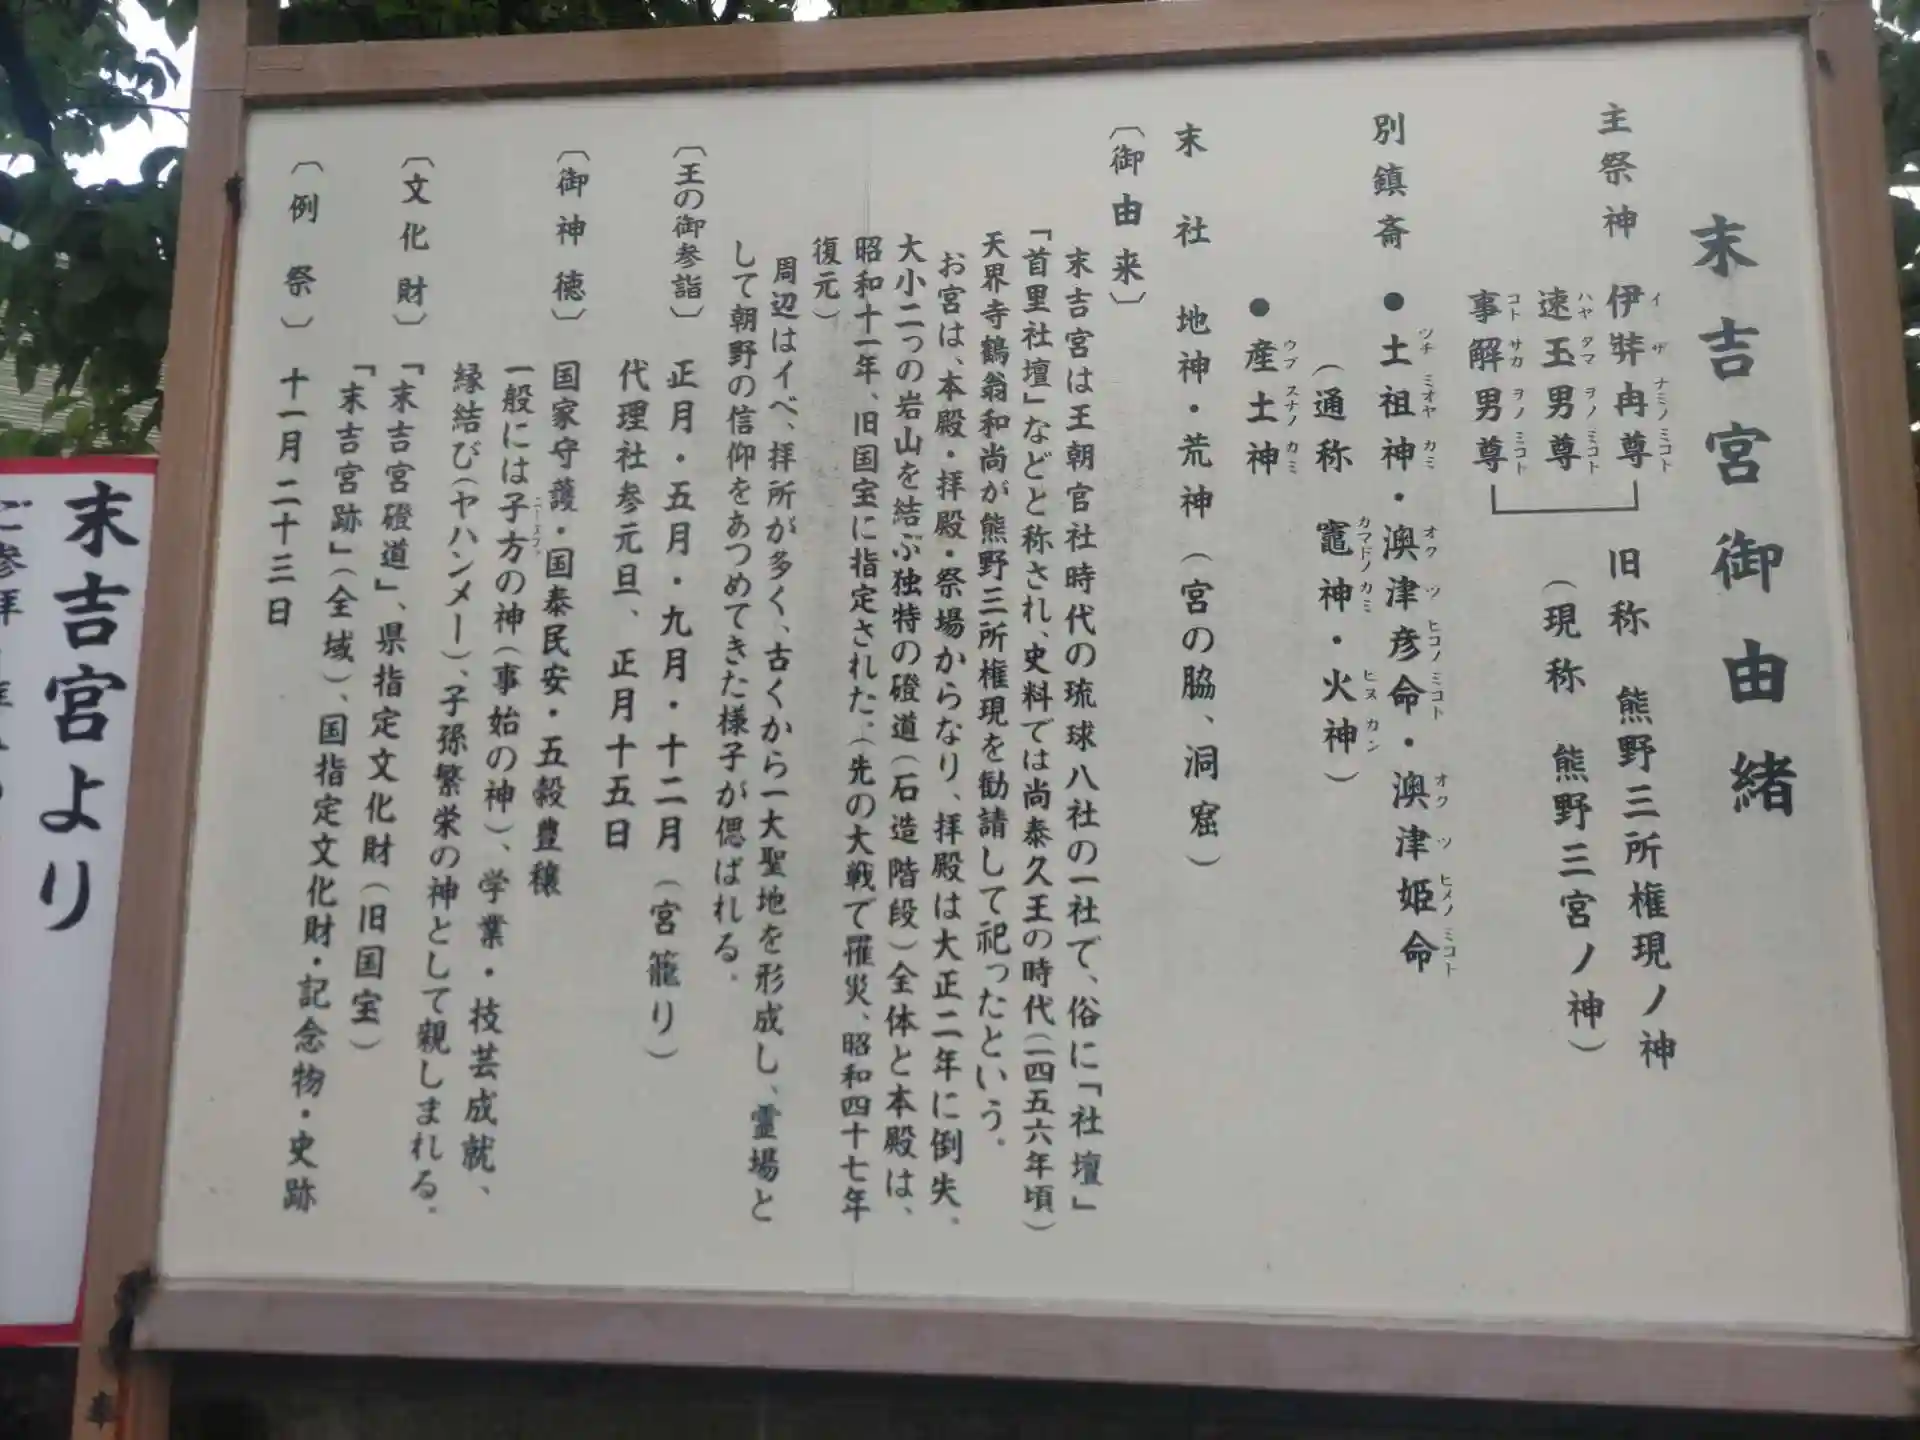 末吉宮御由緒
主祭神 伊弉冉尊 旧称 熊野三所権現ノ神
イザナミノミコト
速玉男尊 (現称 熊野三宮ノ神)
ハヤタマヲノミコト
事解男尊
コトサカヲノミコト
別鎮斎 ●土祖神・澳津彦命・澳津姫命
ツチミオヤカミ オクツヒコノミコト オクツヒメノミコト
(通称 竈神・火神)
カマドノカミ ヒヌカン
●産土神
ウブスナノカミ
末社 地神・荒神(宮の脇、洞窟)
〔御由来〕
末吉宮は王朝官社時代の琉球八社の一社で、俗に「社壇」
「首里社壇」などと称され、史料では尚泰久王の時代(一四五六年頃)
天界寺鶴翁和尚が熊野三所権現を勧請して祀ったという.
お宮は、本殿・拝殿・祭場からなり、拝殿は大正二年に倒失.
大小二つの岩山を結ぶ独特の磴道(石造階段)全体と本殿は、
昭和十一年、旧国宝に指定された.(先の大戦で罹災、昭和四十七年
復元)
周辺はイベ、拝所が多く、古くから一大聖地を形成し、霊場と
して朝野の信仰をあつめてきた様子が偲ばれる.
〔王の御参詣〕 正月・五月・九月・十二月(宮籠り)
代理社参元旦、正月十五日
〔御神徳〕 国家守護・国泰民安・五穀豊穣
一般には子方の神(事始の神)、学業・技芸成就、
ニーヌファ
縁結び(ヤハンメー)、子孫繁栄の神として親しまれる.
〔文化財〕 「末吉宮磴道」、県指定文化財(旧国宝)
「末吉宮跡」(全域)、国指定文化財・記念物・史跡
〔例祭〕 十一月二十三日
末吉宮より
ご参拝